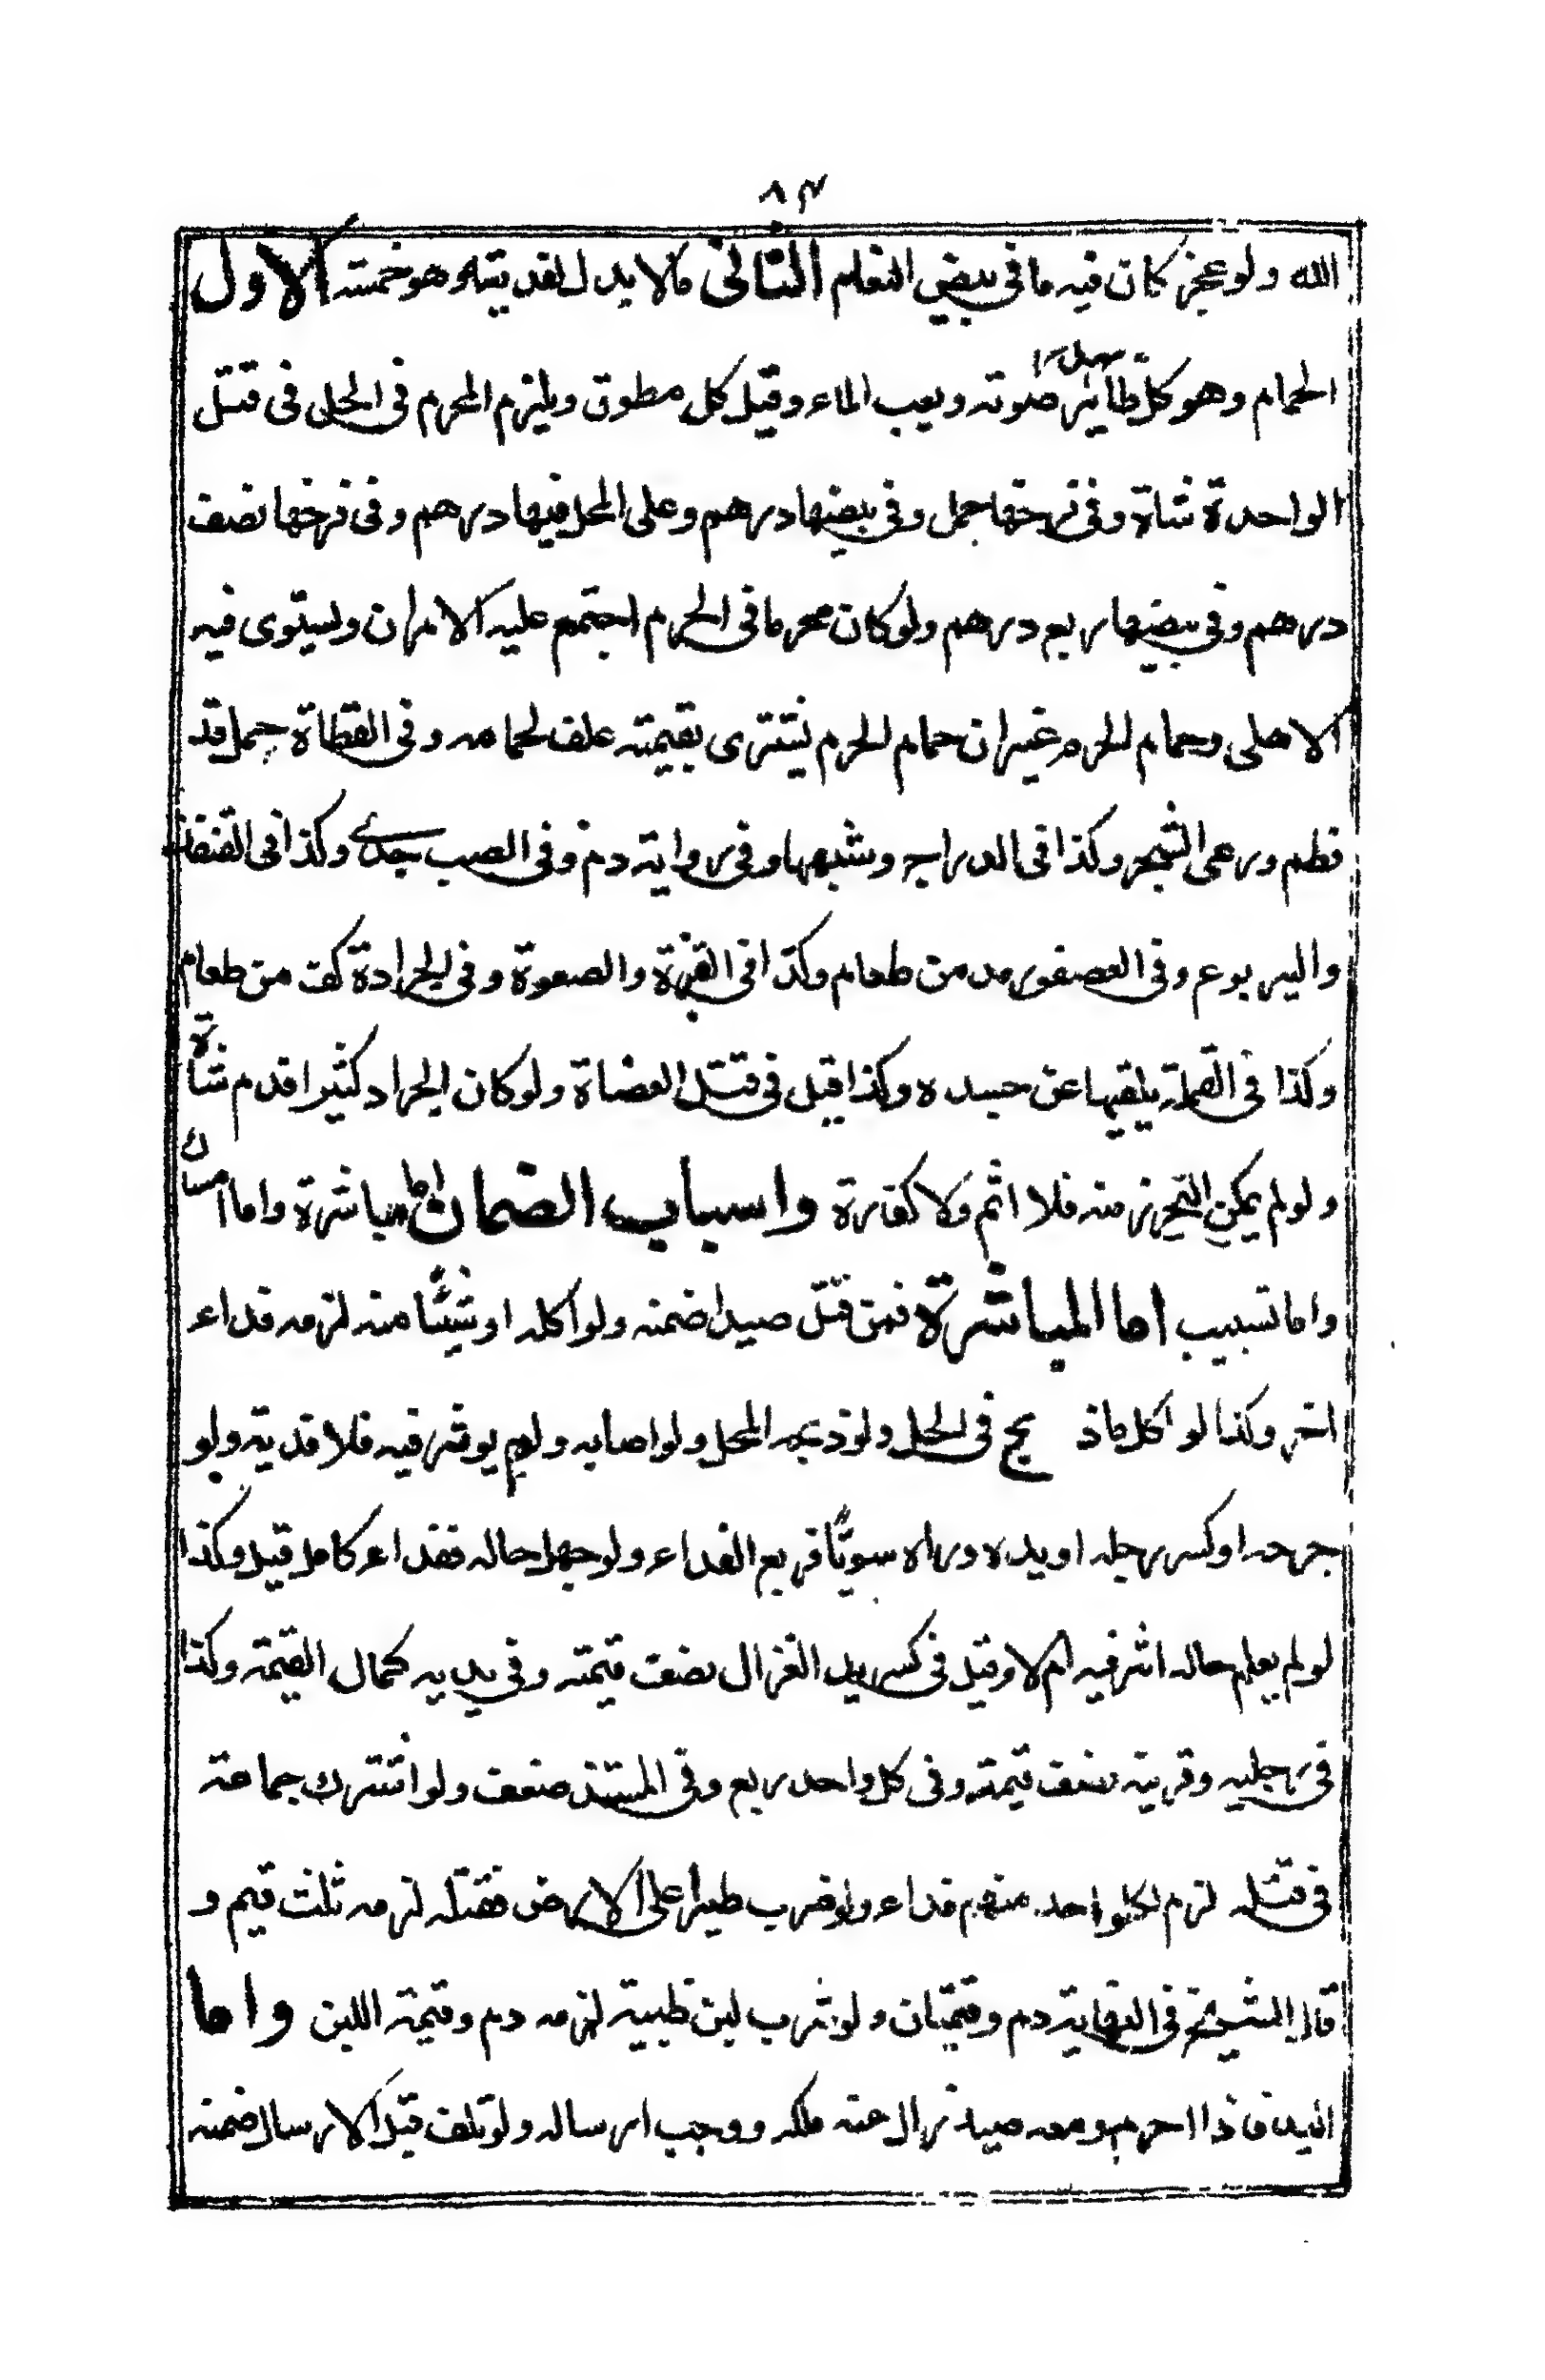 ٨٣
الله ولو عجز كان فيه ما فى بيض النعام الثانى ما لا بدل لفديته وهو خمسة الاول
الحمام وهو كل طائر يهدر صوته ويعب الماء وقيل كل مطوق ويلزم المحرم فى الحل فى قتل
الواحدة شاة وفى فرخها حمل وفى بيضها درهم وعلى المحل فيها درهم وفى فرخها نصف
درهم وفى بيضها ربع درهم ولو كان محرما فى الحرم اجتمع عليه الامران ويستوى فيه
الاهلى وحمام الحرم غير ان حمام الحرم يشترى بقيمته علف لحمامه وفى القطاة حمل قد
فطم ورعى الشجر وكذا فى الدراج وشبهها وفى رواية دم وفى الضب جدى وكذا فى القنفذ
واليربوع وفى العصفور مد من طعام وكذا فى القبرة والصعوة وفى الجرادة كف من طعام
وكذا فى القملة يلقيها عن جسده وكذا قيل فى قتل العضاة ولو كان الجراد كثيرا فدم شاة
ولو لم يمكن التحرز منه فلا اثم ولا كفارة واسباب الضمان اما مباشرة واما امساك
واما تسبيب اما المباشرة فمن قتل صيدا ضمنه ولو اكله او شيئًا منه لزمه فداء
اخر وكذا لو اكل ما ذبح فى الحل ولو ذبحه المحل ولو اصابه ولم يوثر فيه فلا فدية ولو
جرحه او كسر رجله او يده وراه سويًا فربع الفداء ولو جهل حاله ففداء كامل قيل وكذا
لو لم يعلم حاله اثر فيه ام لا وقيل فى كسر يد الغزال نصف قيمته وفى يديه كمال القيمة وكذا
فى رجليه وقرينه نصف قيمته وفى كل واحد ربع وفى المستند ضعف ولو اشترك جماعة
فى قتله لزم لكلو احد منهم فداء ولو ضرب طيرا على الارض فقتله لزمه ثلث قيم و
قال الشيخ فى النهاية دم وقيمتان ولو شرب لبن ظبية لزمه دم وقيمة اللبن واما
اليد فاذا احرم ومعه صيد زال عنه ملكه ووجب ارساله ولو تلف قبل الارسال ضمنه